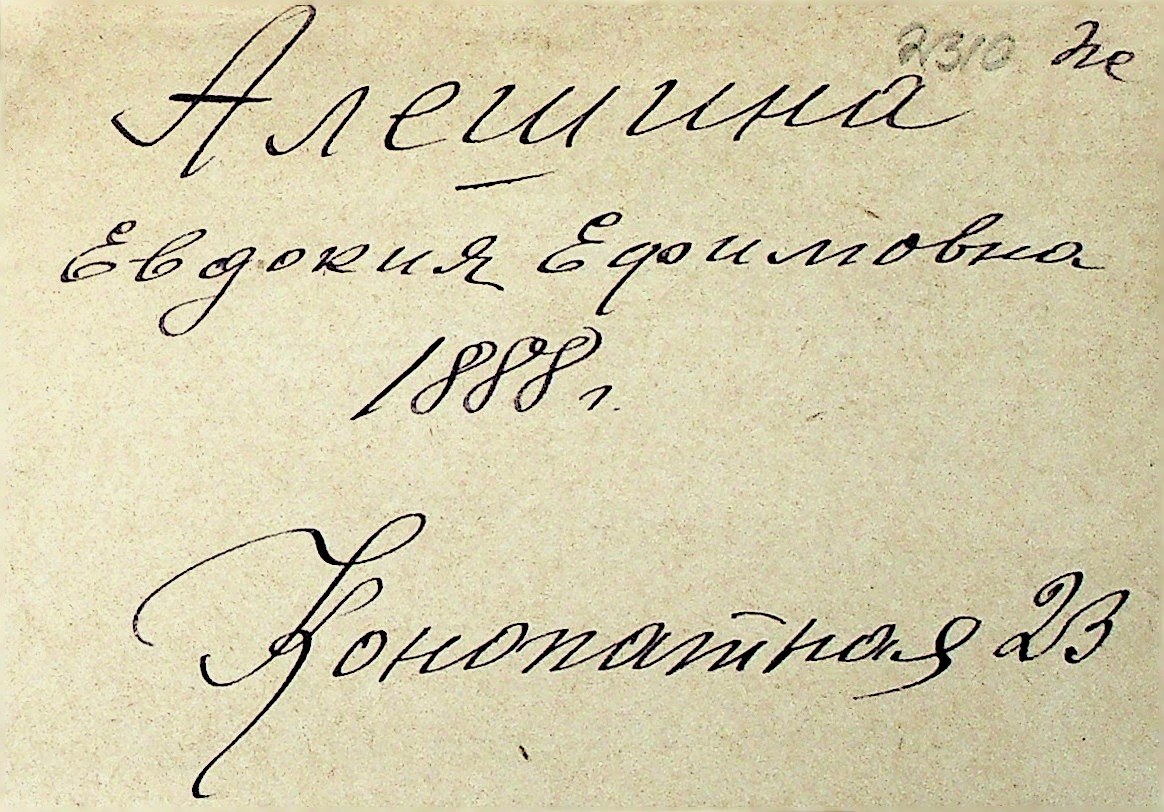 2310
Алешина
Евдокия Ефимовна
1888 г.
Конопатная 23